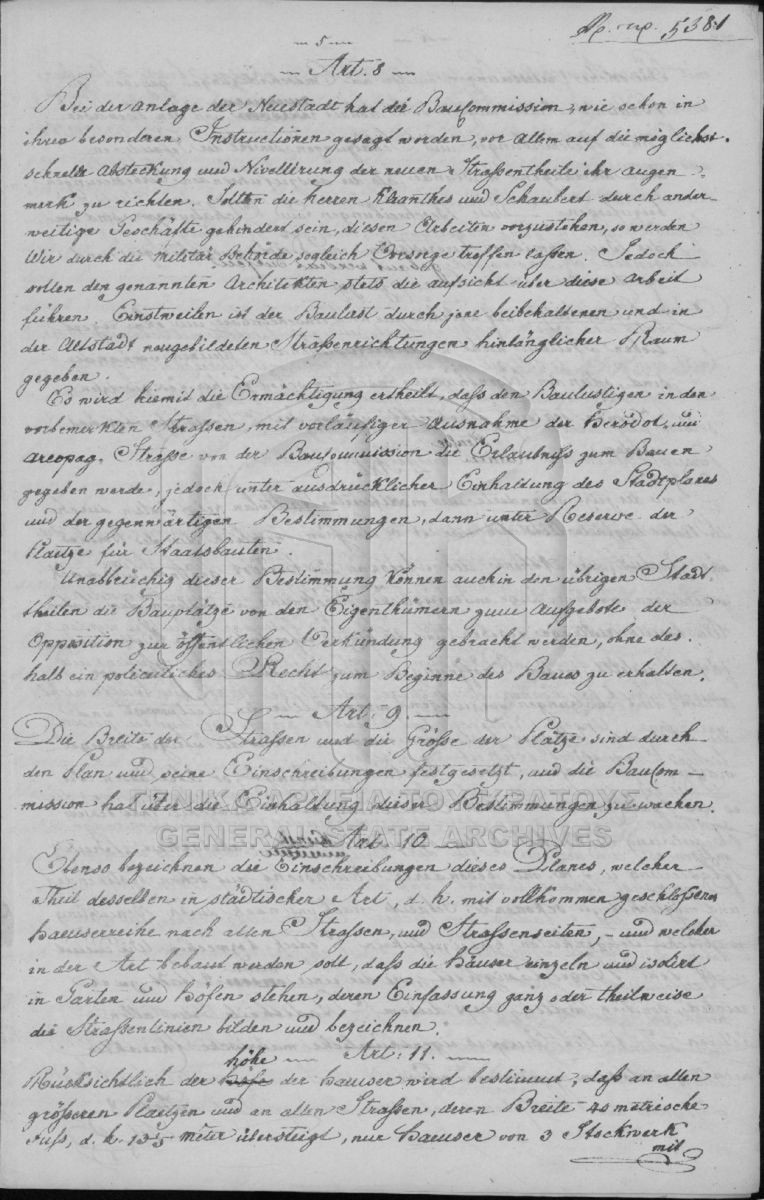 5
5381
Art. 8
Bei der Anlage der Neustadt hat die BauCommission, wie schon in
ihren besonderen Instructionen gesagt worden, vor allem auf die möglichst
schnelle Absteckung und Nivellirung der neuen Strassentheile ihr Augen
merk zu richten. Sollten die Herren Kleanthes und Schaubert durch ander
weitige Geschäfte gehindert sein, diesen Arbeiten vorzustehen, so werden
Wir durch die militär Behörde sogleich Vorsorge treffen lassen. Jedoch
sollen den genannten Architekten stets die Aufsicht über diese Arbeit
führen. Einstweilen ist der Baulust durch jene beibehaltenen und in
der Altstadt neugebildeten Straßenrichtungen hinlänglicher Raum
gegeben.
Es wird hiemit die Ermächtigung ertheilt, daß den Baulustigen in den
vorbemerkten Strassen, mit vorläufiger Ausnahme der Herodot, und
Areopag. Strasse von der BauCommission die Erlaubniß zum Bauen
gegeben werde, jedoch unter ausdrücklicher Einhaltung des Stadtplanes
und der gegenwärtigen Bestimmungen, dann unter Reserve der
Plaetze für Staatsbauten.
Unabbrüchig dieser Bestimmung können auch in den übrigen Stadt
theilen die Bauplätze von den Eigenthümern zum Aufgebote der
Opposition zur öffentlichen Verkündung gebracht werden, ohne des
halb ein policeiliches Recht zum Beginne des Baues zu erhalten.
Art: 9
Die Breite der Strassen und die Größe der Plätze sind durch
den Plan und seine Einschreibungen festgesetzt, und die BauCom
mission hat über die Einhaltung dieser Bestimmungen zu wachen.
ΓΕΝΙΚΑ ΑΡΧΕΙΑ ΤΟΥ ΚΡΑΤΟΥΣ
GENERAL STATE ARCHIVES
Art. 10
Ebenso bezeichnen die Einschreibungen dieses Planes, welcher
Theil desselben in städtischer Art, d. h. mit vollkommen geschloßen
Haeuserreihe nach allen Strassen, und Strassenseiten, - und welcher
in der Art bebaut werden soll, daß die Häuser einzeln und isolirt
in Gärten und Höfen stehen, deren Einfassung ganz oder theilweise
die Strassenlinien bilden und bezeichnen.
Art: 11.
höhe
Rücksichtlich der der Häuser wird bestimmt, daß an allen
größeren Plaetzen und an allen Strassen, deren Breite 40 metrische
Fuß, d. h. 13 5 meter übersteigt, nur Haeuser von 3 Stockwerk
mit